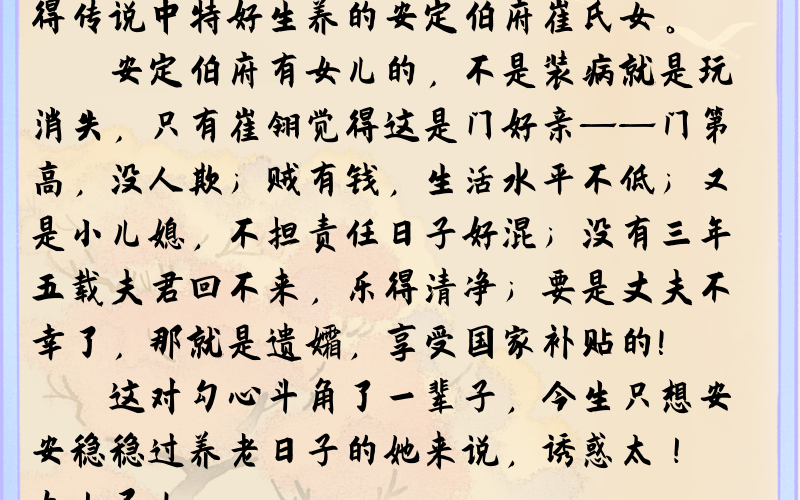 得传说中特好生养的安定伯府崔氏女。
安定伯府有女儿的，不是装病就是玩
消失，只有崔翎觉得这是门好亲——门第
高，没人欺；贼有钱，生活水平不低；又
是小儿媳，不担责任日子好混；没有三年
五载夫君回不来，乐得清净；要是丈夫不
幸了，那就是遗孀，享受国家补贴的!
这对勾心斗角了一辈子，今生只想安
安稳稳过养老日子的她来说，诱惑太！